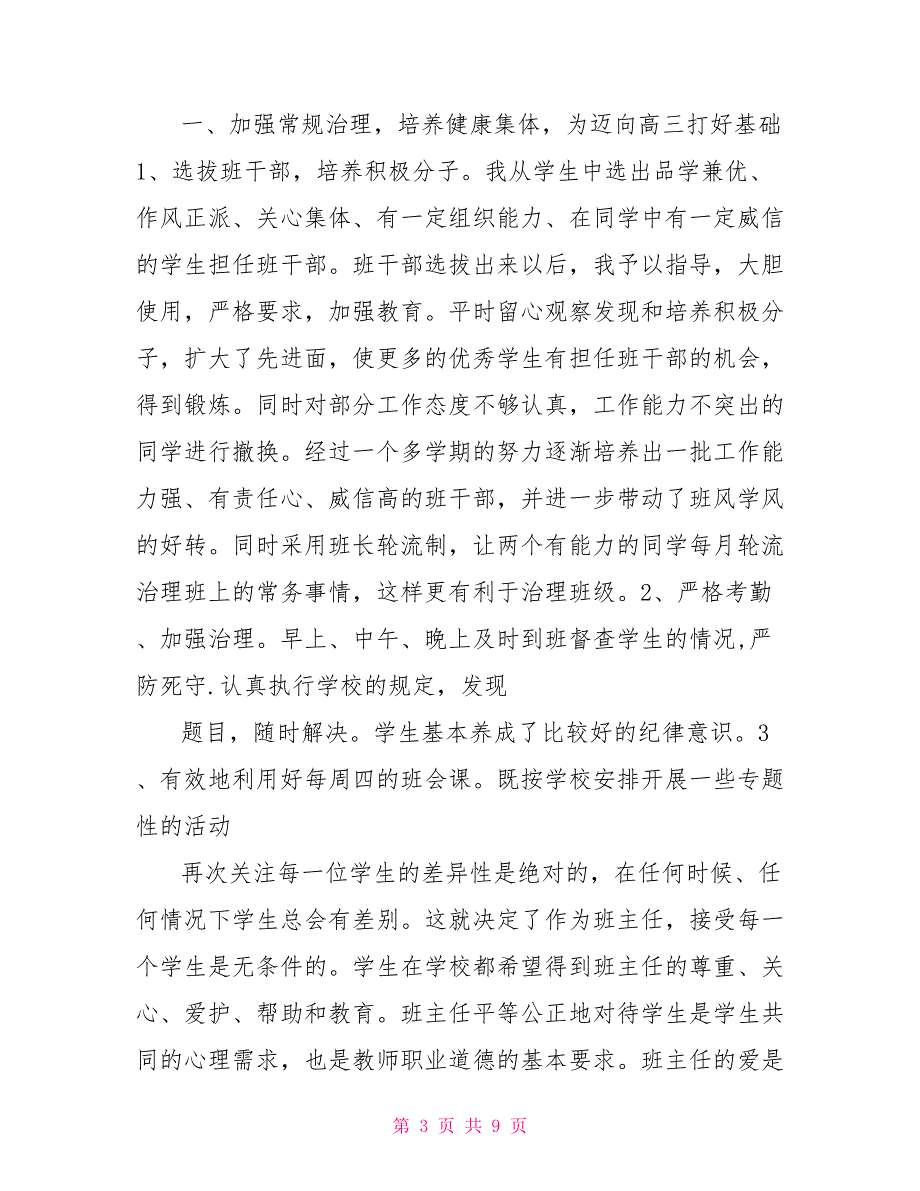 一、加强常规治理，培养健康集体，为迈向高三打好基础
1、选拔班干部，培养积极分子。我从学生中选出品学兼优、
作风正派、关心集体、有一定组织能力、在同学中有一定威信
的学生担任班干部。班干部选拔出来以后，我予以指导，大胆
使用，严格要求，加强教育。平时留心观察发现和培养积极分
子，扩大了先进面，使更多的优秀学生有担任班干部的机会，
得到锻炼。同时对部分工作态度不够认真，工作能力不突出的
同学进行撤换。经过一个多学期的努力逐渐培养出一批工作能
力强、有责任心、威信高的班干部，并进一步带动了班风学风
的好转。同时采用班长轮流制，让两个有能力的同学每月轮流
治理班上的常务事情，这样更有利于治理班级。2、严格考勤
、加强治理。早上、中午、晚上及时到班督查学生的情况,严
防死守.认真执行学校的规定，发现
题目，随时解决。学生基本养成了比较好的纪律意识。3
、有效地利用好每周四的班会课。既按学校安排开展一些专题
性的活动
再次关注每一位学生的差异性是绝对的，在任何时候、任
何情况下学生总会有差别。这就决定了作为班主任，接受每一
个学生是无条件的。学生在学校都希望得到班主任的尊重、关
心、爱护、帮助和教育。班主任平等公正地对待学生是学生共
同的心理需求，也是教师职业道德的基本要求。班主任的爱是
第 3 页 共 9 页